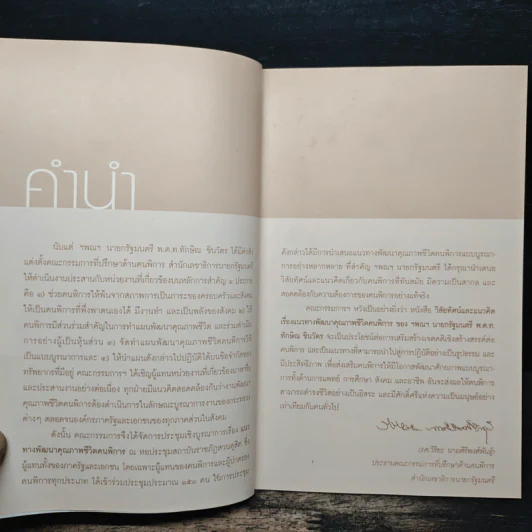 คำนำ
นับแต่ ฯพณฯ นายกรัฐมนตรี พ.ต.ท.ทักษิณ ชินวัตร ได้มีคำสั่ง
แต่งตั้งคณะกรรมการที่ปรึกษาด้านคนพิการ สำนักเลขาธิการนายกรัฐมนตรี
ให้ดำเนินงานประสานกับหน่วยงานที่เกี่ยวข้องบนหลักการสำคัญ ๔ ประการ
คือ ๑) ช่วยคนพิการให้พ้นจากสภาพการเป็นภาระของครอบครัวและสังคม
ให้เป็นคนพิการที่พึ่งพาตนเองได้ มีงานทำ และเป็นพลังของสังคม ๒) ให้
คนพิการมีส่วนร่วมสำคัญในการทำแผนพัฒนาคุณภาพชีวิต และร่วมดำเนิน
การอย่างผู้เป็นหุ้นส่วน ๓) จัดทำแผนพัฒนาคุณภาพชีวิตคนพิการ
เป็นแบบบูรณาการและ ๔) ให้นำแผนดังกล่าวไปปฏิบัติได้บนข้อจำกัดของ
ทรัพยากรที่มีอยู่ คณะกรรมการฯ ได้เชิญผู้แทนหน่วยงานที่เกี่ยวข้อง
และประสานงานอย่างต่อเนื่อง ทุกฝ่ายมีแนวคิดสอดคล้องกันว่างานพัฒนา
คุณภาพชีวิตคนพิการต้องดำเนินการในลักษณะบูรณาการงานของกระทรวง
ต่างๆ ตลอดจนองค์กรภาครัฐและเอกชนของทุกภาคส่วนในสังคม
ดังนั้น คณะกรรมการจึงได้จัดการประชุมเชิงบูรณาการเรื่อง
ทางพัฒนาคุณภาพชีวิตคนพิการ ณ หอประชุมสถาบันราชภัฏสวนดุสิต ซึ่ง
ผู้แทนทั้งของภาครัฐและเอกชน โดยเฉพาะผู้แทนของคนพิการและผู้ปกครอง
คนพิการทุกประเภท ได้เข้าร่วมประชุมประมาณ ๑๕๐ คน ใช้การประชุม
ดังกล่าวได้มีการนำเสนอแนวทางพัฒนาคุณภาพชีวิตคนพิการแบบบูรณา-
การอย่างหลากหลาย ที่สำคัญ ฯพณฯ นายกรัฐมนตรี ได้กรุณานำเสนอ
วิสัยทัศน์และแนวคิดเกี่ยวกับคนพิการที่ทันสมัย มีความเป็นสากล และ
สอดคล้องกับความต้องการของคนพิการอย่างแท้จริง
คณะกรรมการฯ หวังเป็นอย่างยิ่งว่า หนังสือ วิสัยทัศน์และแนวคิด
เรื่องแนวทางพัฒนาคุณภาพชีวิตคนพิการ ของ ฯพณฯ นายกรัฐมนตรี พ.ต.ท.
ทักษิณ ชินวัตร จะเป็นประโยชน์ต่อการเสริมสร้างเจตคติเชิงสร้างสรรค์ต่อ
คนพิการ และเป็นแนวทางที่สามารถนำไปสู่การปฏิบัติอย่างเป็นรูปธรรม และ
มีประสิทธิภาพ เพื่อส่งเสริมคนพิการให้มีโอกาสพัฒนาศักยภาพแบบบูรณา-
การทั้งด้านการแพทย์ การศึกษา สังคม และอาชีพ อันจะส่งผลให้คนพิการ
สามารถดำรงชีวิตอย่างเป็นอิสระ และมีศักดิ์ศรีแห่งความเป็นมนุษย์อย่าง
เท่าเทียมกับคนทั่วไป
ประธานคณะกรรมการที่ปรึกษาด้านคนพิการ
สำนักเลขาธิการนายกรัฐมนตรี